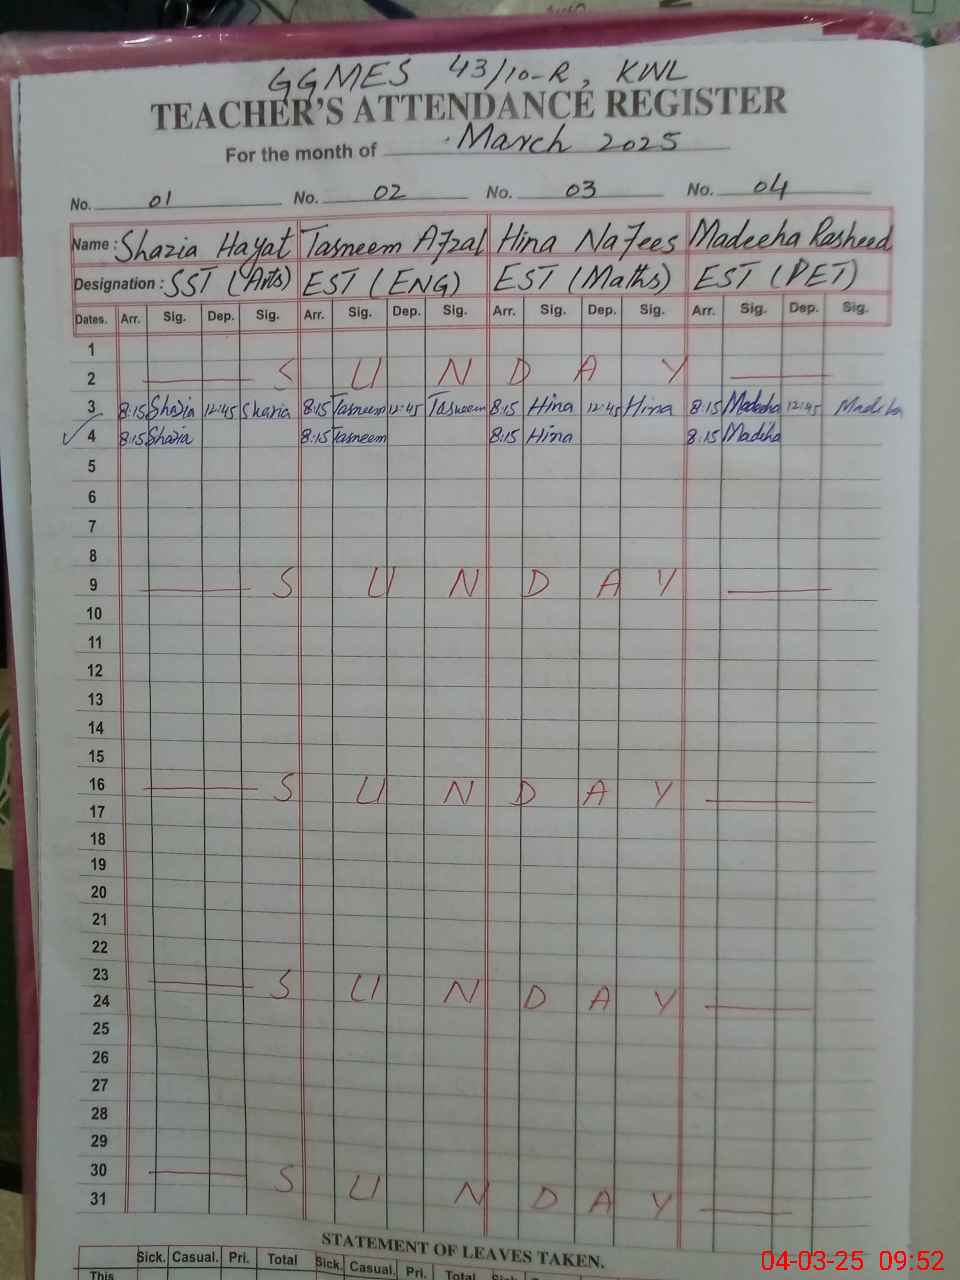 GGMES 43/10-R, KWL
TEACHER'S ATTENDANCE REGISTER
For the month of March 2025
No. 01 No. 02 No. 03 No. 04
Name : Shazia Hayat Tasneem Afzal Hina Nafees Madeeha Rasheed
Designation : SST (Arts) EST (ENG) EST (Maths) EST (PET)
Dates. Arr. Sig. Dep. Sig. Arr. Sig. Dep. Sig. Arr. Sig. Dep. Sig. Arr. Sig. Dep. Sig.
1
2 S U N D A Y
3 8:15 Shazia 12:45 Shazia 8:15 Tasneem 12:45 Tasneem 8:15 Hina 12:45 Hina 8:15 Madeeha 12:45 Madeeha
4 8:15 Shazia 8:15 Tasneem 8:15 Hina 8:15 Madeeha
5
6
7
8
9 S U N D A Y
10
11
12
13
14
15
16 S U N D A Y
17
18
19
20
21
22
23 S U N D A Y
24
25
26
27
28
29
30 S U N D A Y
31
STATEMENT OF LEAVES TAKEN.
Sick. Casual. Pri. Total Sick. Casual. Pri. Total Sick. Casual.
This
04-03-25 09:52